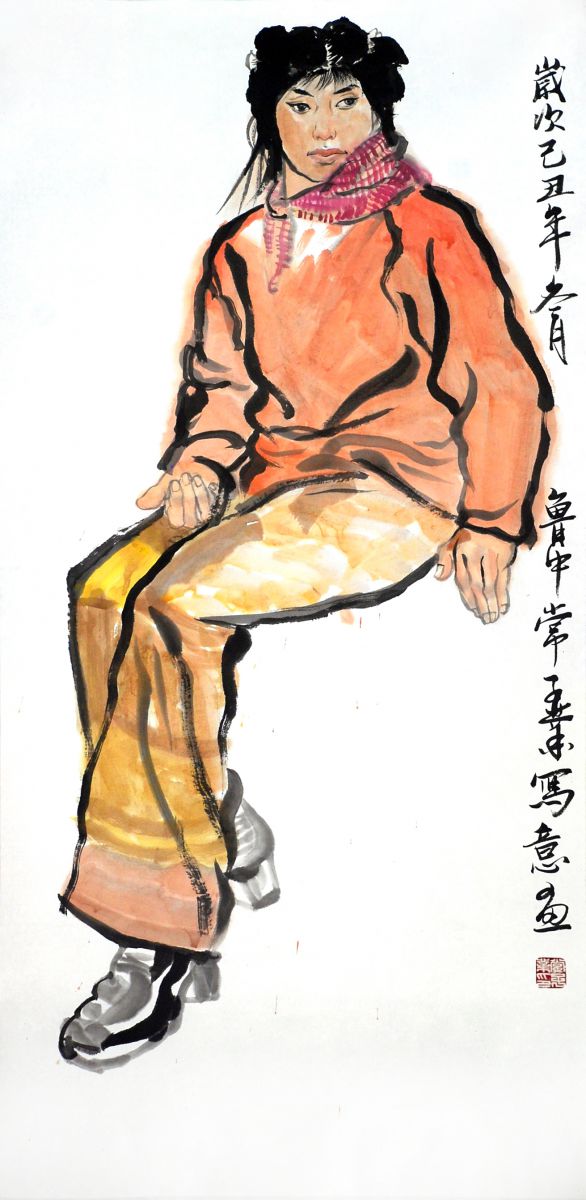 歲次己丑年冬月
魯中常業寫意画